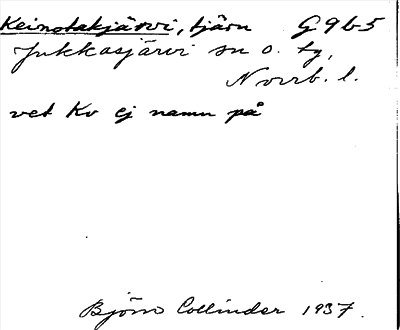 Keinotakjärvi, tjärn G9b5
Jukkasjärvi sn o. tg,
Norrb. l.
vet Kv ej namn på
Björn Collinder 1937.